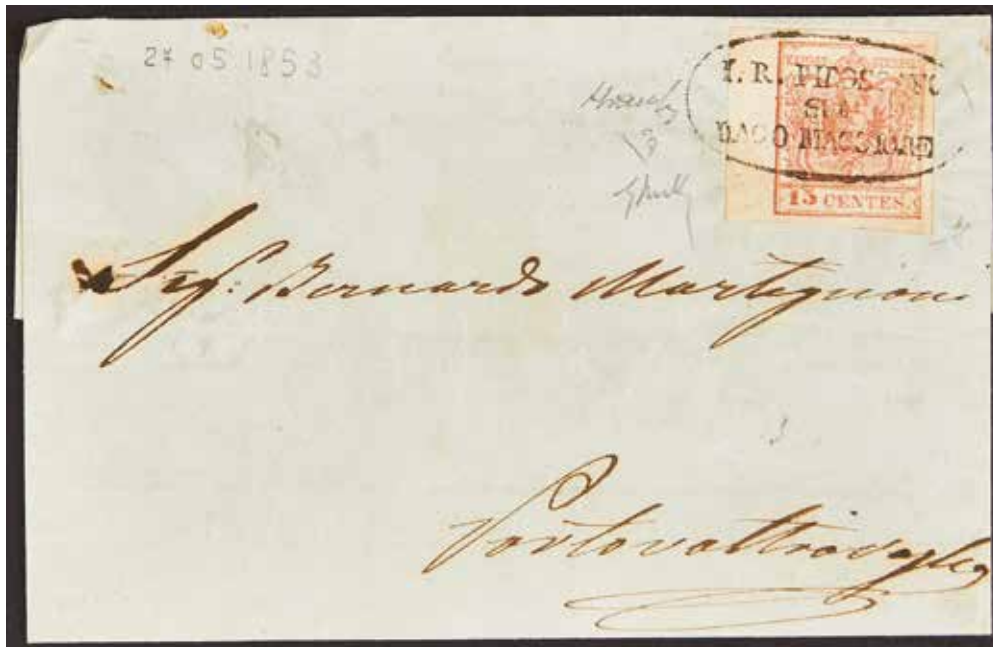 27 05 1853
I. R. PIROSCAFO
SUL
LAGO MAGGIORE
15 CENTES.
Sig: Bernardo Martignoni
Portovaltravaglia